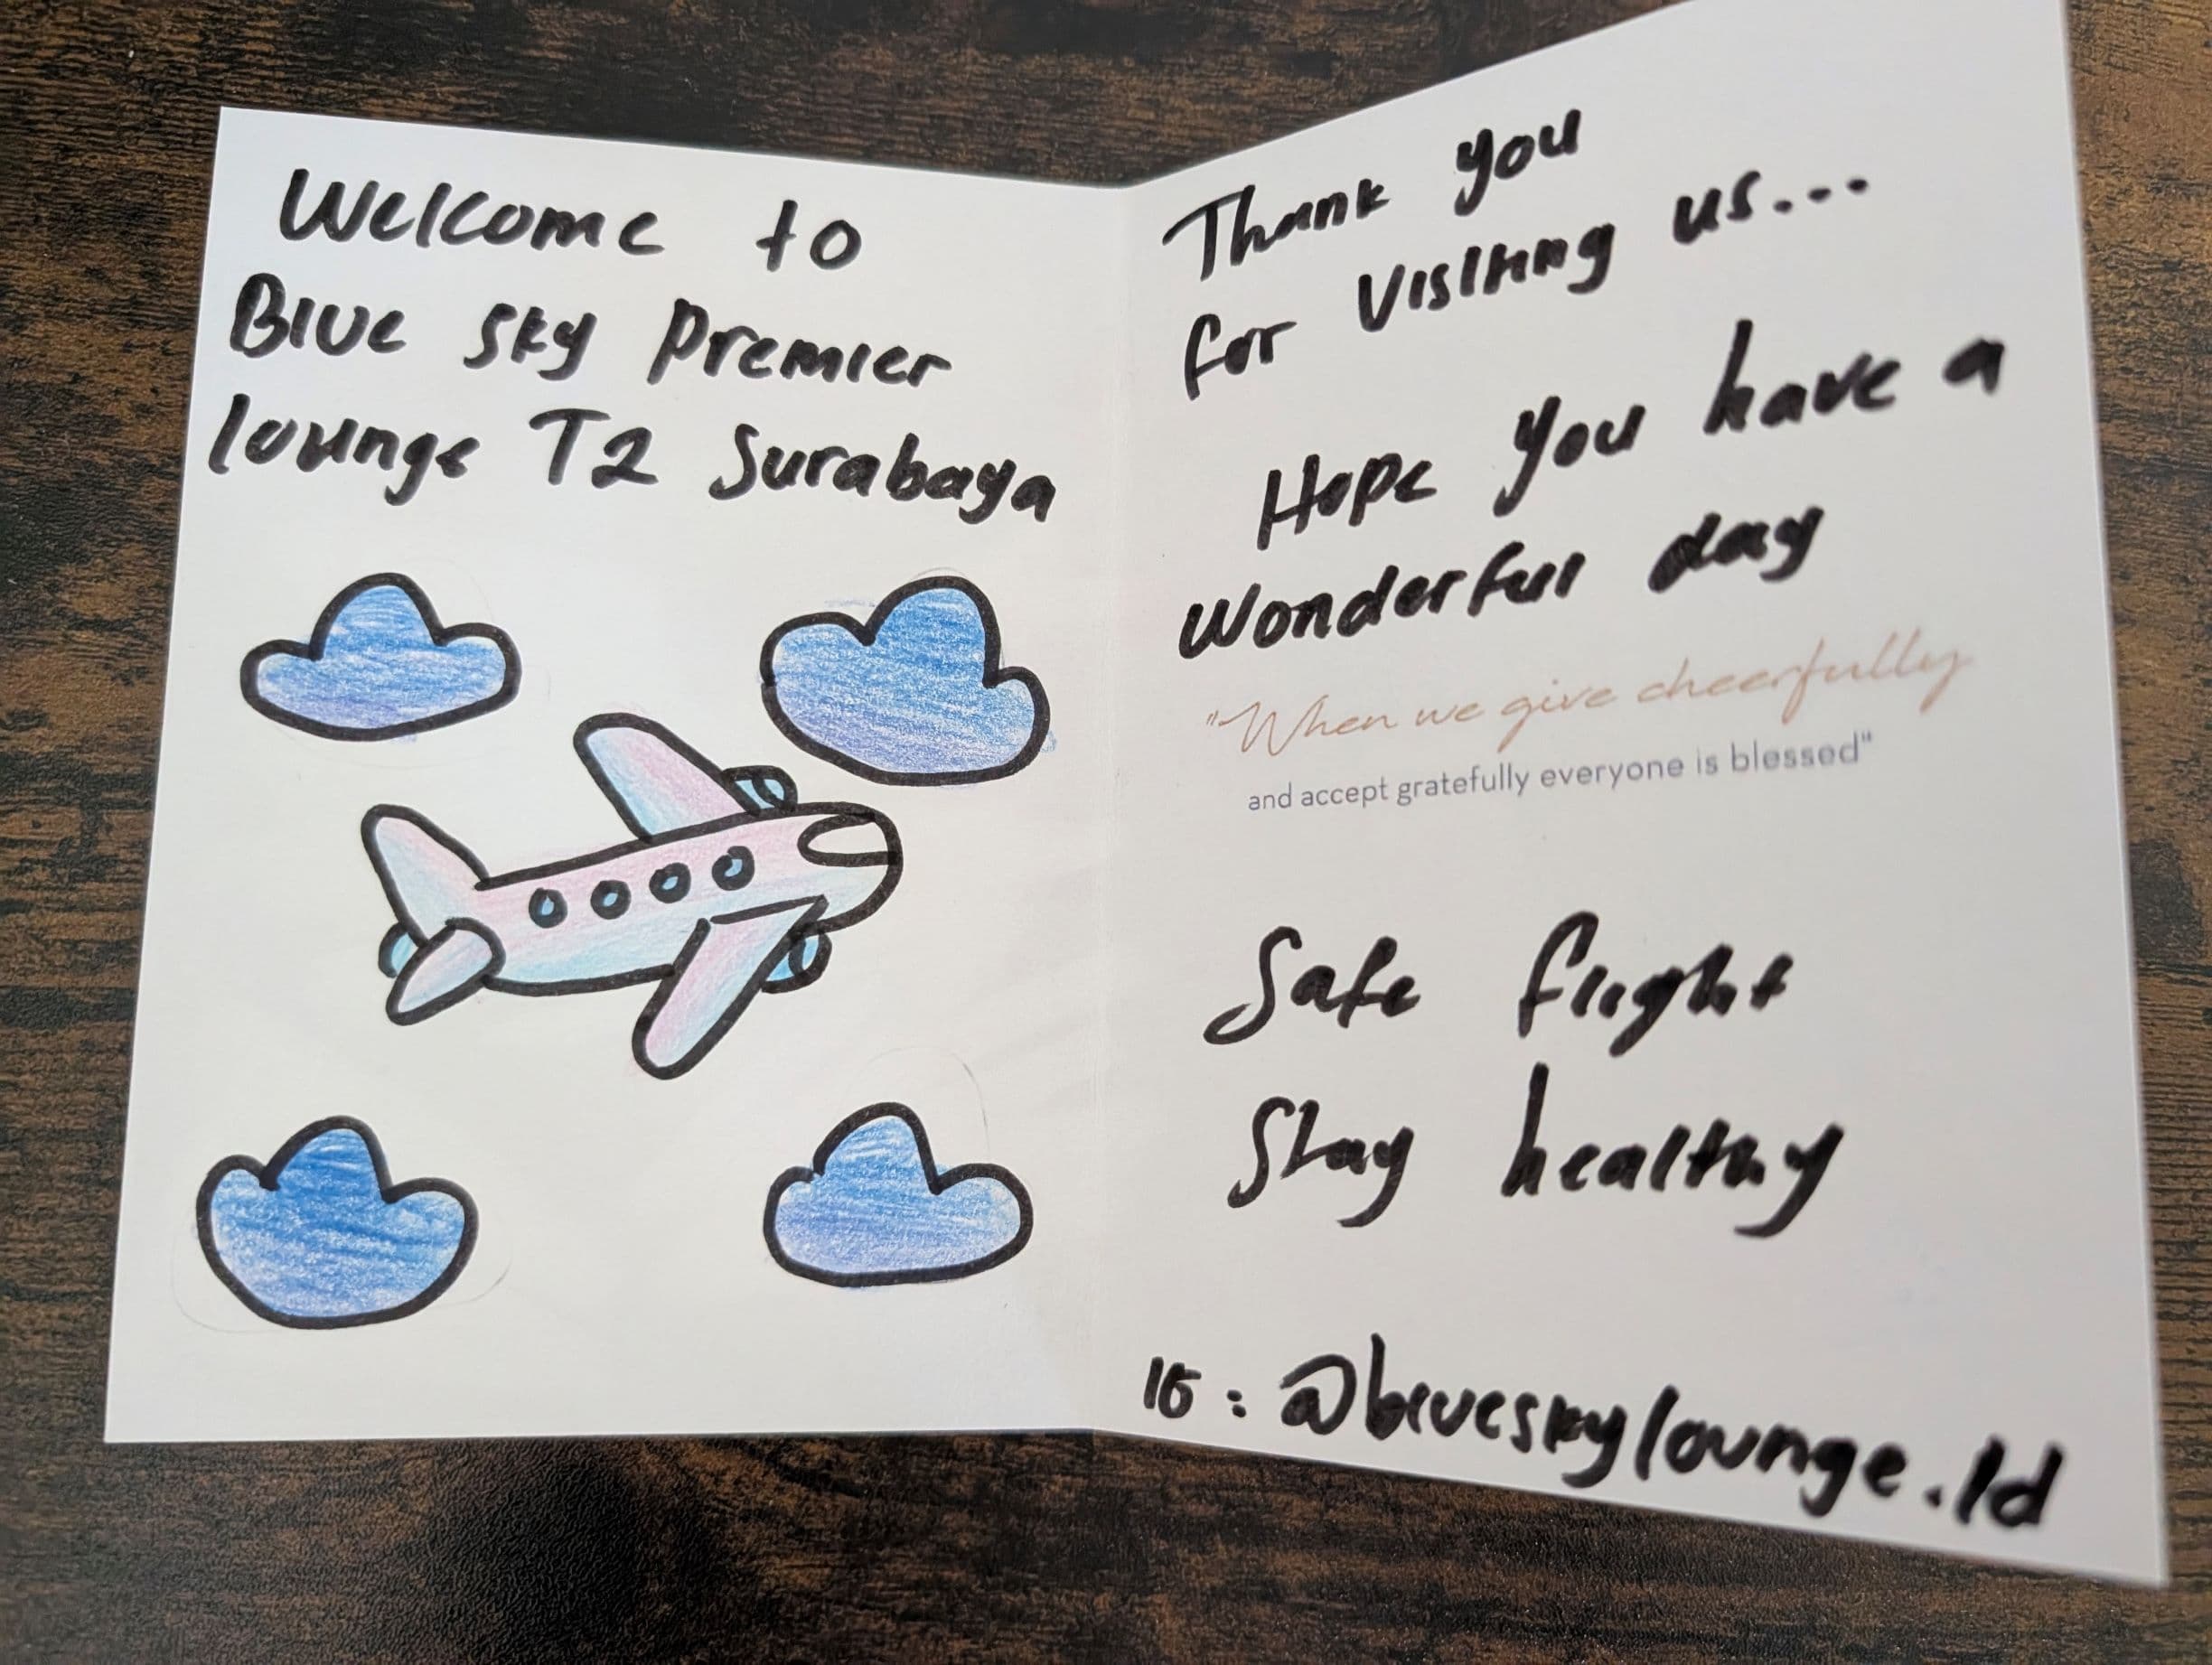 Welcome to
Blue sky premier
lounge T2 Surabaya
Thank you
for visiting us...
Hope you have a
wonderful day
"When we give cheerfully
and accept gratefully everyone is blessed"
Safe flight
Stay healthy
IG : @blueskylounge.id